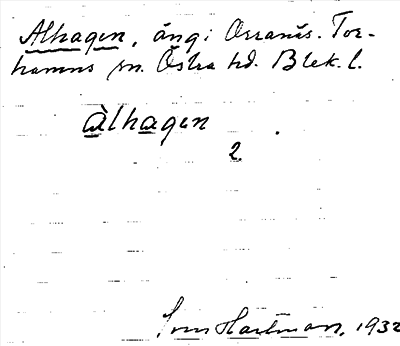 Alhagen, äng i Orranäs. Tor-
hamns sn. Östra hd. Blek. l.
àlhagen
2
Sven Hartman, 1932